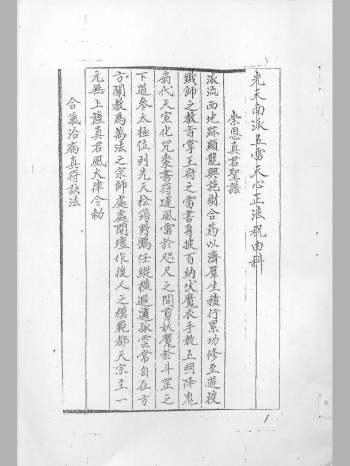 先天南派五雷天心正法祝由科
崇恩真君聖誥
派流西地跡顯龍興施財合药以濟羣生積行累功修至道授
鐵師之教首掌王府之雷書身披百納伏魔衣手執五明降鬼
扇代天宣化咒棗書符運風雷於咫尺之間剪妖魔於斗罡之
下道參太極位列先天松筠野鶴任縱橫遐邇孤雲常自在方
方闡教為萬法之宗師處處開壇作後人之模範都天宗主一
元無上薩真君風大律令勅
合氣治病真符訣法
1